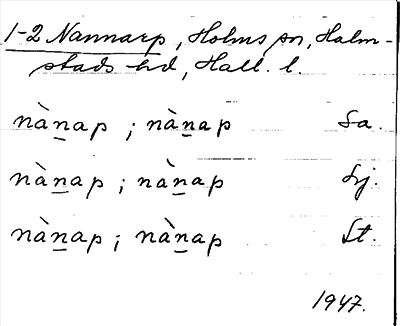 1-2 Nannarp, Holms sn, Halm-
stads hd, Hall. l.
nàn̲ap ; nàn̲ap Sa.
nàn̲ap ; nàn̲ap Sj.
nàn̲ap ; nàn̲ap St.
1947.